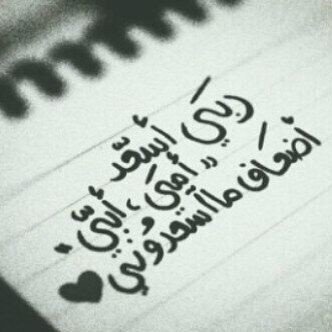 ربي أسعد
"أمي ، أبي"
أضعاف ما أسعدوني ♥